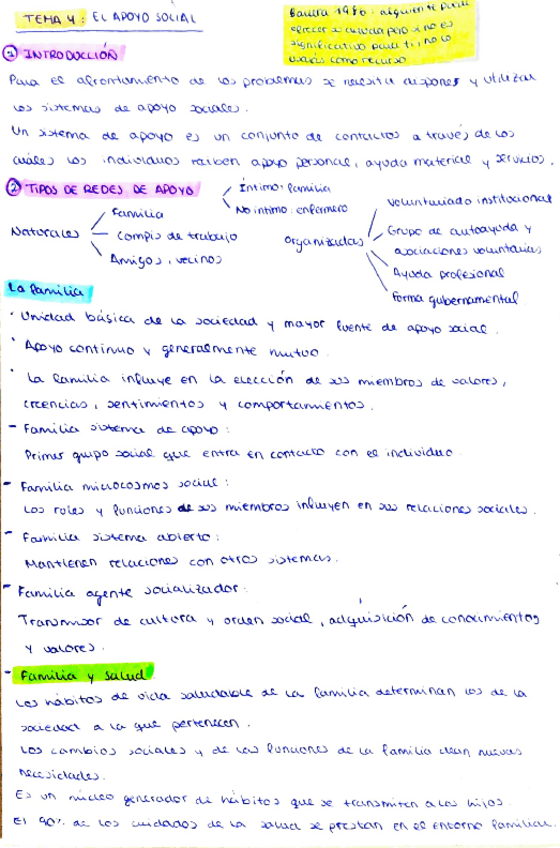 TEMA 4: EL APOYO SOCIAL
1980: alguien te puede
ofrecer su ayuda pero si no es
significativo para ti, no lo
usarás como recurso
① INTRODUCCIÓN
Para el afrontamiento de los problemas se necesita disponer y utilizar
los sistemas de apoyo sociales.
Un sistema de apoyo es un conjunto de contactos a través de los
cuales los individuos reciben apoyo personal, ayuda material y servicios.
② TIPOS DE REDES DE APOYO
Íntimo: familia
No íntimo: enfermero
Naturales
Familia
Compis de trabajo
Amigos, vecinos
Organizadas
Voluntariado institucional
Grupo de autoayuda y
asociaciones voluntarias
Ayuda profesional
Forma gubernamental
La familia
· Unidad básica de la sociedad y mayor fuente de apoyo social.
· Apoyo continuo y generalmente mutuo.
· La familia influye en la elección de sus miembros de valores,
creencias, sentimientos y comportamientos.
- Familia sistema de apoyo:
Primer grupo social que entra en contacto con el individuo.
- Familia microcosmos social:
Los roles y funciones de sus miembros influyen en sus relaciones sociales.
- Familia sistema abierto:
Mantienen relaciones con otros sistemas.
- Familia agente socializador:
Transmisor de cultura y orden social, adquisición de conocimientos
y valores.
- Familia y salud
Los hábitos de vida saludable de la familia determinan los de la
sociedad a la que pertenecen.
Los cambios sociales y de las funciones de la familia dan nuevas
necesidades.
Es un núcleo generador de hábitos que se transmiten a los hijos.
El 90% de los cuidados de la salud se prestan en el entorno familiar.